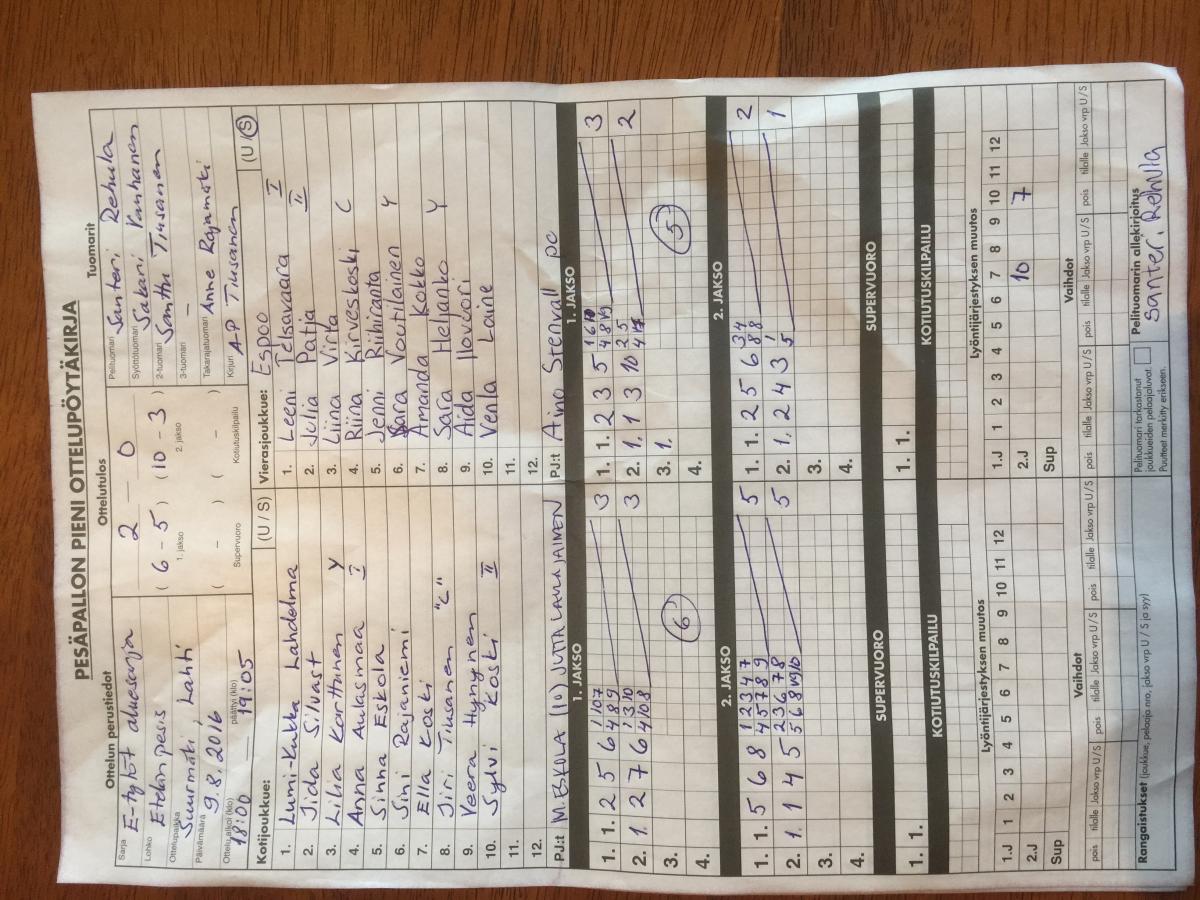 PESÄPALLON PIENI OTTELUPÖYTÄKIRJA
Ottelun perustiedot
Sarja E-tytöt aluesarja
Lohko Etelänpesis
Ottelupaikka Suurmäki, Lahti
Päivämäärä 9.8.2016
Ottelu alkoi (klo) 18:00 päättyi (klo) 19:05
Ottelutulos
2 – 0
( 6 – 5 ) ( 10 – 3 )
1. jakso 2. jakso
( – ) ( – )
Supervuoro Kotiutuskilpailu
Tuomarit
Pelituomari Santeri Rehula
Syöttötuomari Sakari Vanhanen
2-tuomari Santtu Tiusanen
3-tuomari –
Takarajatuomari Anne Rajamäki
Kirjuri A-P Tiusanen
Kotijoukkue: (U / S)
1. Lumi-Kukka Lahdelma
2. Iida Silvast
3. Lilia Karttunen Y
4. Anna Aukasmaa I
5. Sinna Eskola
6. Sini Rajaniemi
7. Ella Koski
8. Jiri Tiusanen "C"
9. Veera Hynynen
10. Sylvi Koski II
11.
12.
PJ:t M. ESKOLA (IV) JUTTA LAVAJAINEN
Vierasjoukkue: Espoo (U / S)
1. Leeni Telsavaara I
2. Julia Patja II
3. Liina Virta
4. Riina Kirveskoski C
5. Jenni Riihiranta
6. Sara Voutilainen Y
7. Amanda Kokko
8. Sara Hellanko Y
9. Aida Ilovuori
10. Venla Laine
11.
12.
PJ:t Aino Stenvall pc
1. JAKSO
1. 1. 2 5 6 4 8 9 3
2. 1. 2 7 6 4 10 8 3
3. 6
4.
1. JAKSO
1. 1. 2 3 5 3
2. 1. 1 3 10 2
3. 1. 5
4.
2. JAKSO
1. 1. 5 6 8 4 5 7 8 9 5
1 2 3 4 7
2. 1. 1 4 5 5 6 8 9 10 5
2 3 6 7 8
3.
4.
2. JAKSO
1. 1. 2 5 6 8 8 2
3 4
2. 1. 2 4 3 5 1
3.
4.
SUPERVUORO
1. 1.
SUPERVUORO
1. 1.
KOTIUTUSKILPAILU
KOTIUTUSKILPAILU
Lyöntijärjestyksen muutos
1.J 1 2 3 4 5 6 7 8 9 10 11 12
2.J
Sup
Lyöntijärjestyksen muutos
1.J 1 2 3 4 5 6 7 8 9 10 11 12
2.J 10 7
Sup
Vaihdot
pois tilalle Jakso vrp U / S pois tilalle Jakso vrp U / S pois tilalle Jakso vrp U / S
Vaihdot
pois tilalle Jakso vrp U / S pois tilalle Jakso vrp U / S pois tilalle Jakso vrp U / S
Rangaistukset (joukkue, pelaaja nro, jakso vrp U / S ja syy)
Pelituomari tarkastanut
joukkueiden pelaajaluvat.
Puutteet merkitty erikseen.
Pelituomarin allekirjoitus
Santeri Rehula